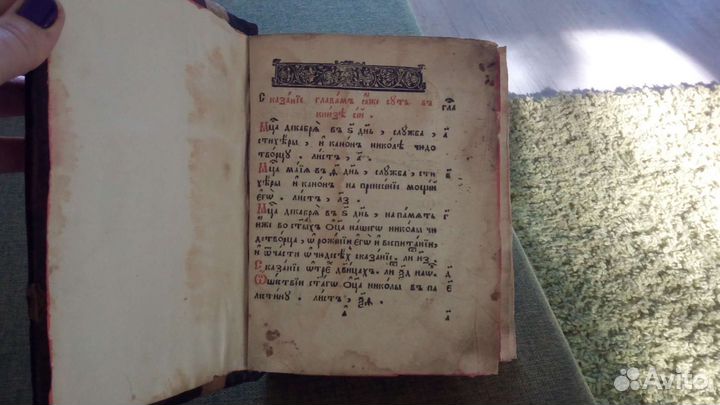 Сказанїе главамъ ꙗ҆же суть въ гла
кнїзѣ сей .
Мц̑а декабрѧ въ ѕ҃ днь , слꙋжба , а҃
стихѣры , и҆ канон николѣ чюдо
творцꙋ . листъ , а҃ .
Мц̑а маїѧ въ ѳ҃ днь , слꙋжба , сти в҃
хѣры и҆ канон на пренесенїе мощїй
є҆гѡ̀ . листъ ,
Мц̑а декабрѧ въ ѕ҃ днь , на памѧть г҃
и҆же во ст҃ыхъ ѻ҆ц҃а нашегѡ николы чю
дотворца , ѡ҆ рожєнїи є҆гѡ̀ и҆ воспитанїи ,
и҆ ѿчасти ѡ҆ чюдесѣхъ сказанїе .
Сказанїе ѡ҆ трехъ двїцахъ . д҃
Ѡ҆ шествїи ст҃агѡ ѻ҆ц҃а николы въ па є҃
лестинꙋ . листъ ,
а҃ а҃
Avito